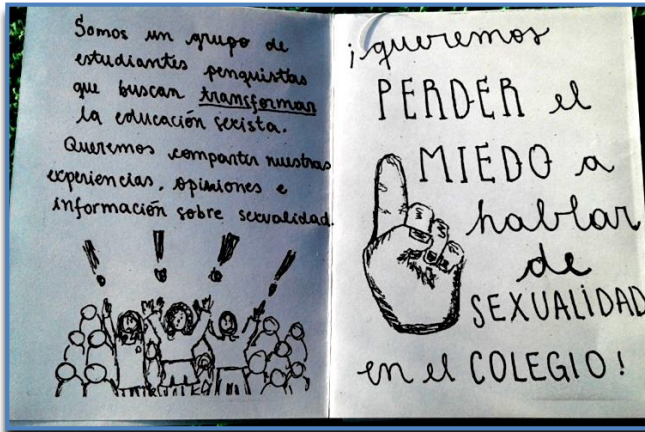 Somos un grupo de
estudiantes penquistas
que buscan transformar
la educación sexista.
Queremos compartir nuestras
experiencias, opiniones e
información sobre sexualidad.
! ! ! !
¡queremos
PERDER el
MIEDO a
hablar
de
SEXUALIDAD
en el COLEGIO!